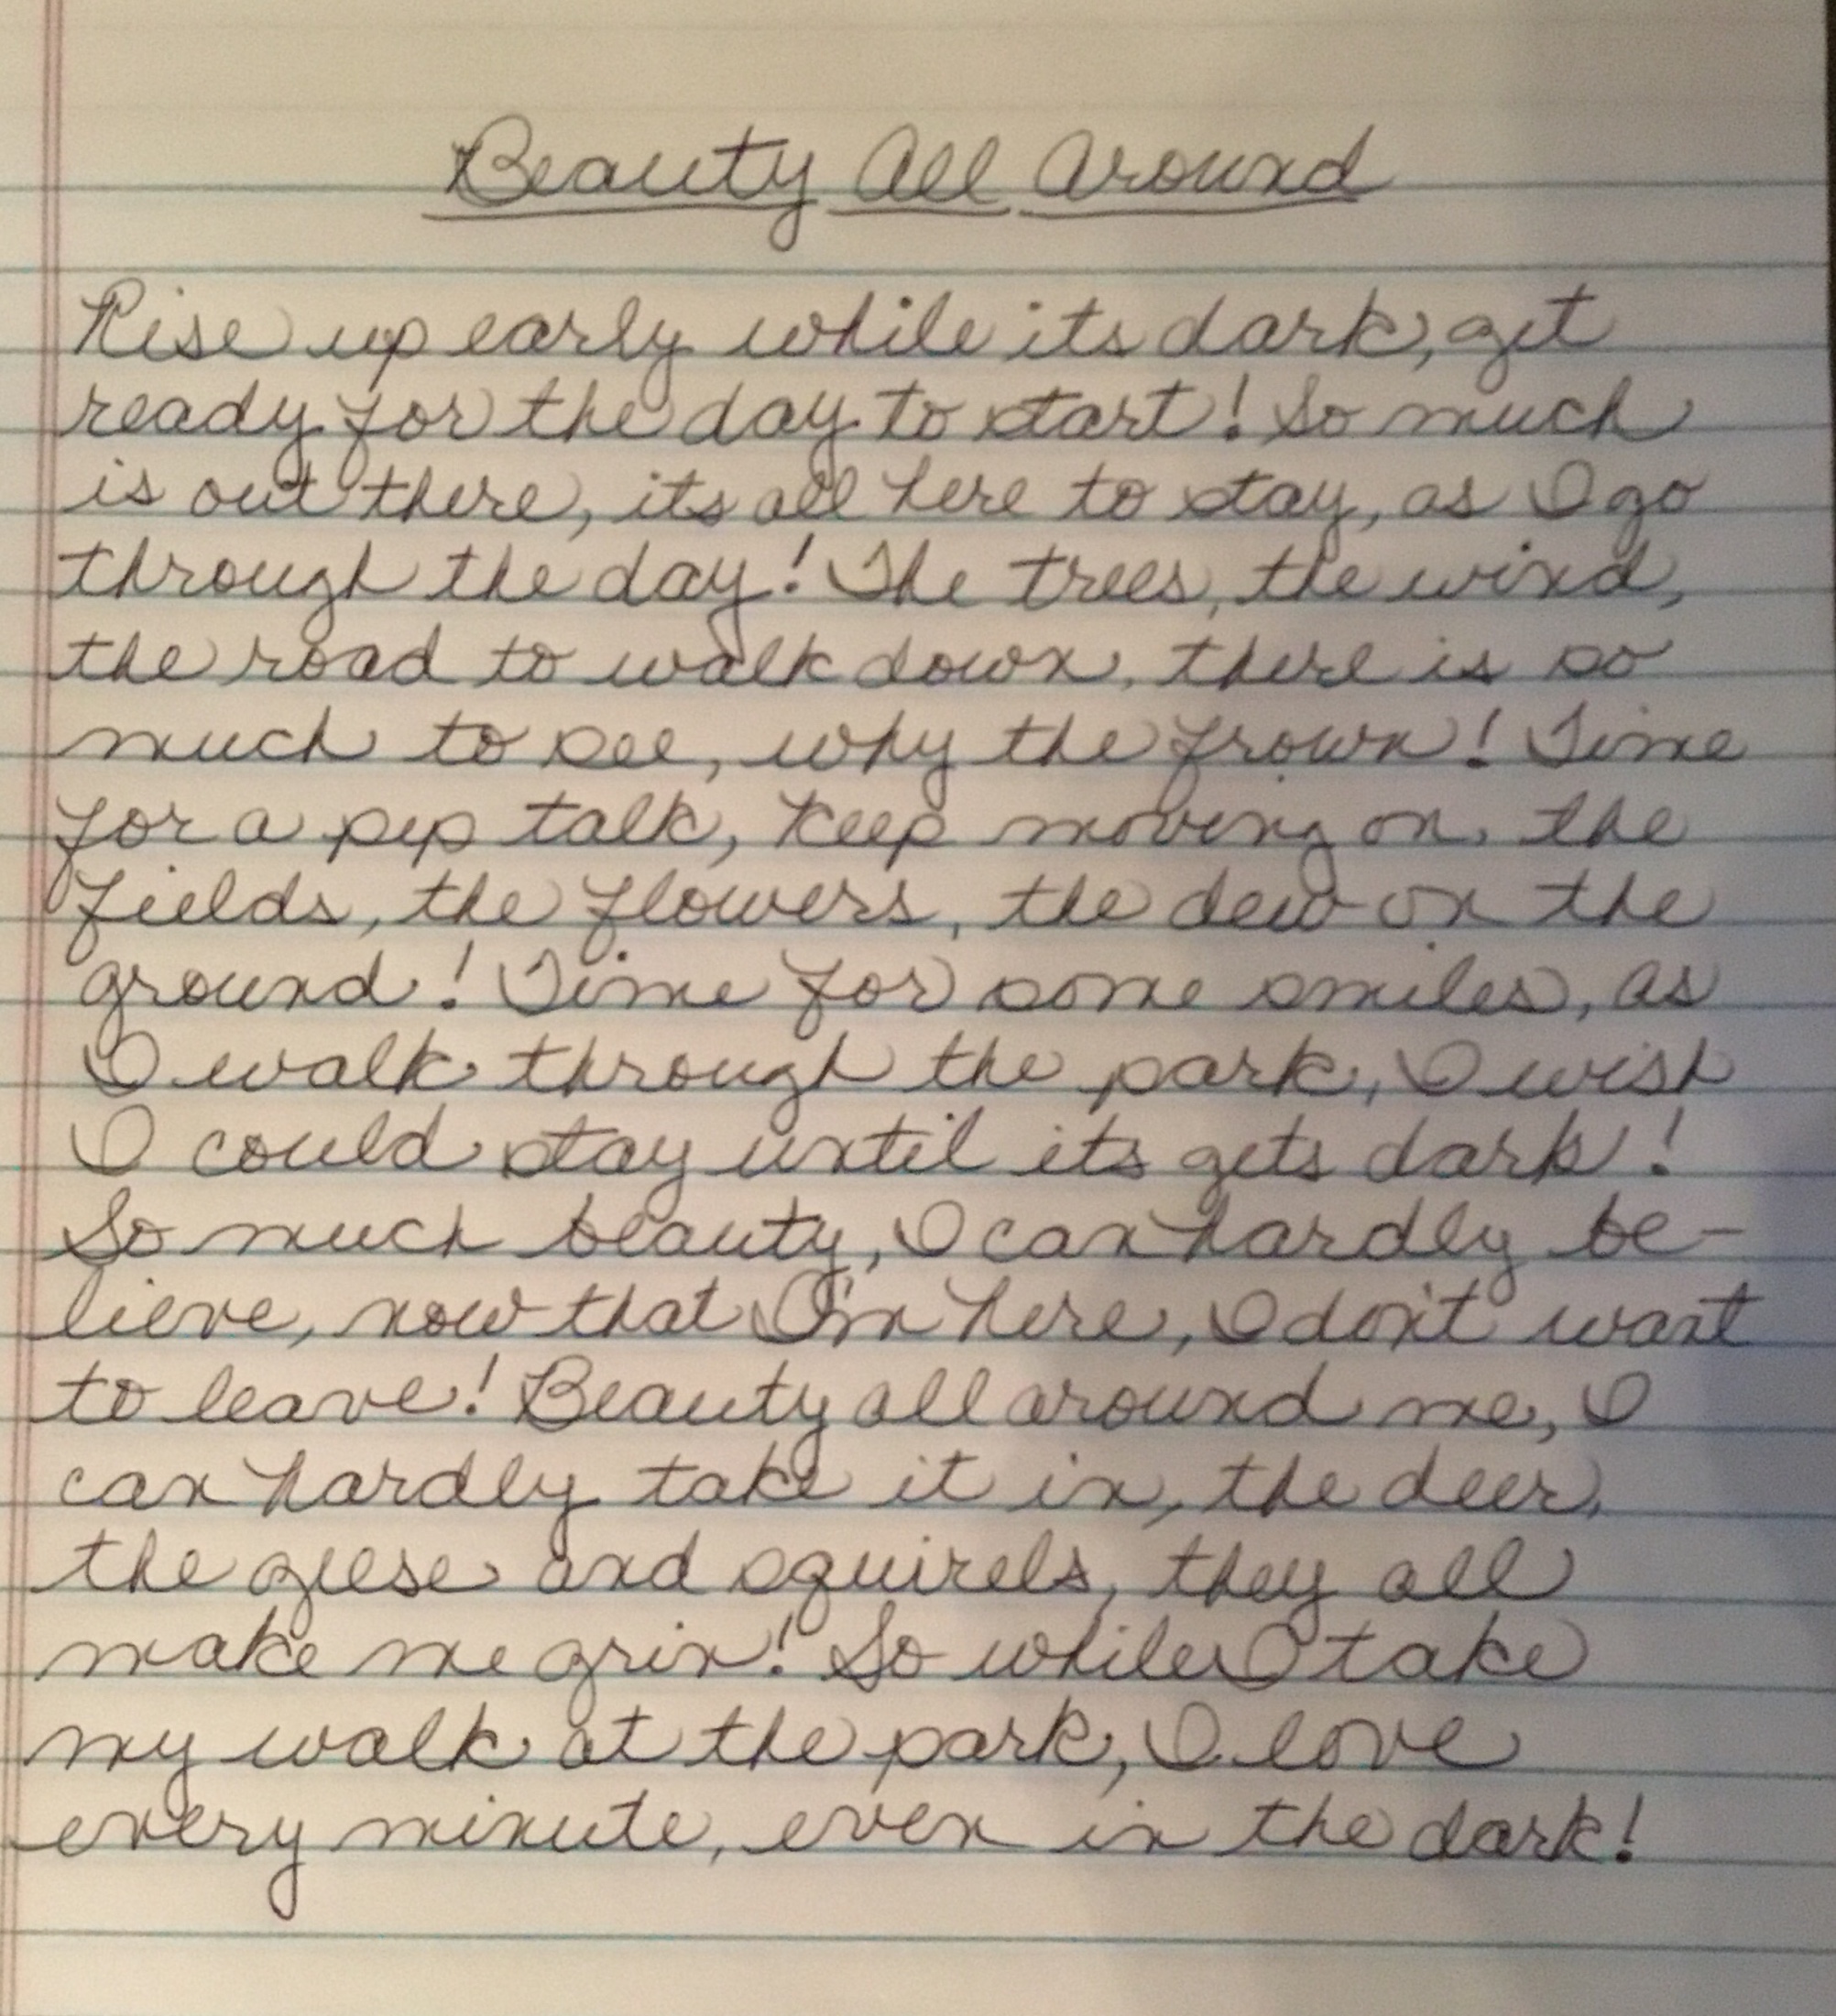 Beauty All Around
Rise up early while its dark, get
ready for the day to start! So much
is out there, its all here to stay, as I go
through the day! The trees, the wind,
the road to walk down, there is so
much to see, why the frown! Time
for a pep talk, keep moving on, the
fields, the flowers, the dew on the
ground! Time for some smiles, as
I walk through the park, I wish
I could stay until its gets dark!
So much beauty, I can hardly be-
lieve, now that I'm here, I don't want
to leave! Beauty all around me, I
can hardly take it in, the deer,
the geese and squirels, they all
make me grin! So while I take
my walk at the park, I love
every minute, even in the dark!